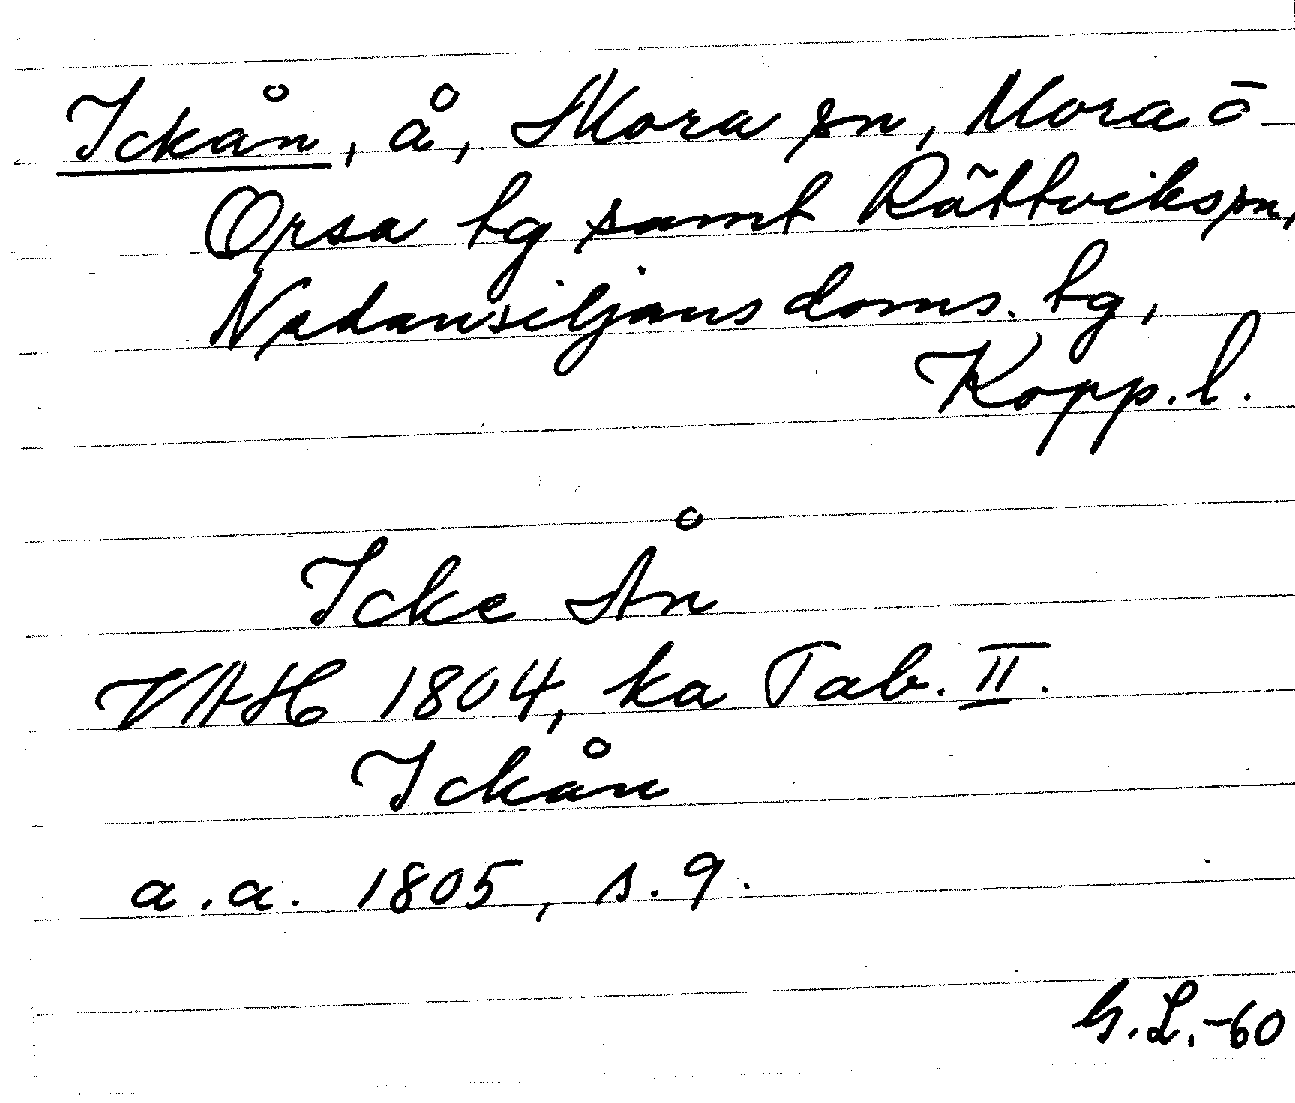 Ickån, å, Mora sn, Mora o
Orsa tg samt Rättvikssn,
Nedansiljans doms. tg,
Kopp. l.
Icke Ån
VAH 1804, ka Tab. II.
Ickån
a.a. 1805, s. 9.
G.L.-60